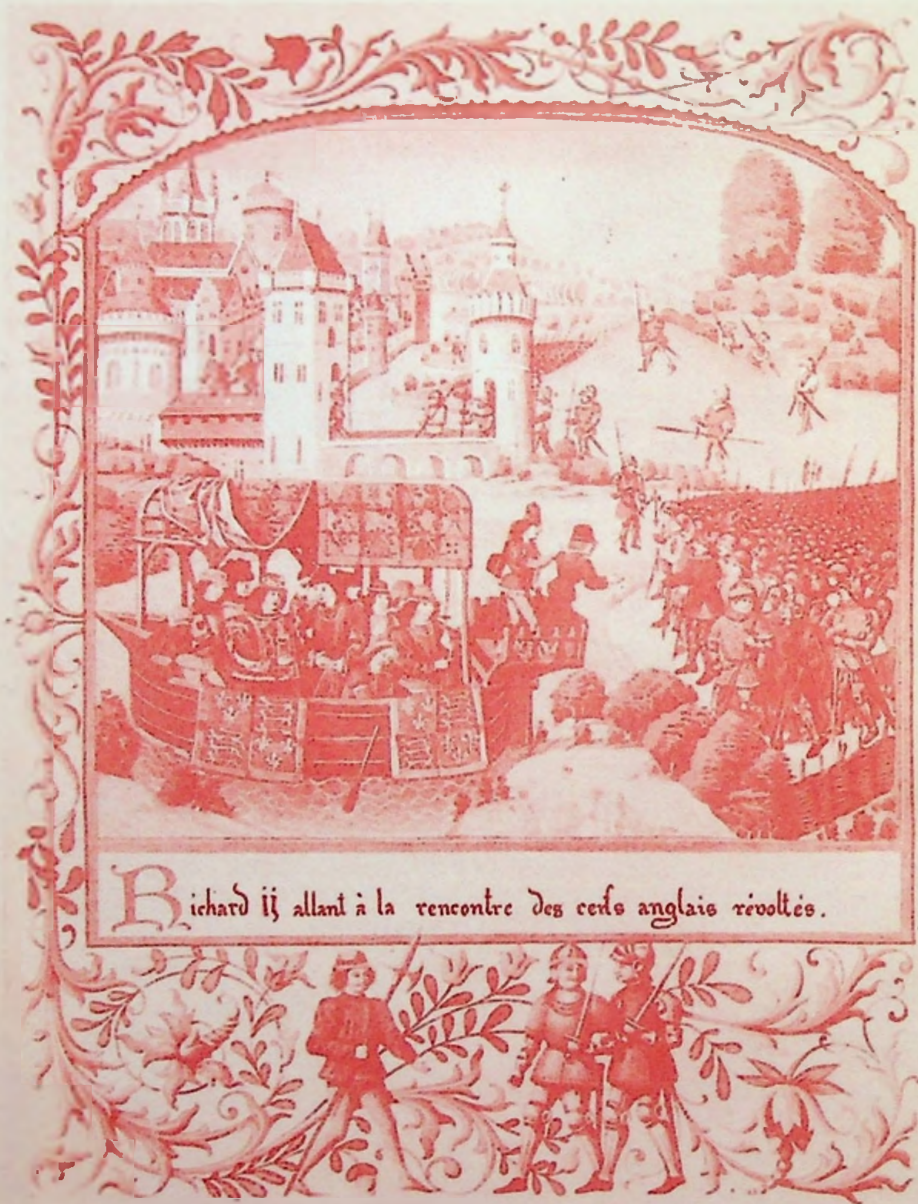 Richard ij allant à la rencontre des cerfs anglais révoltés.